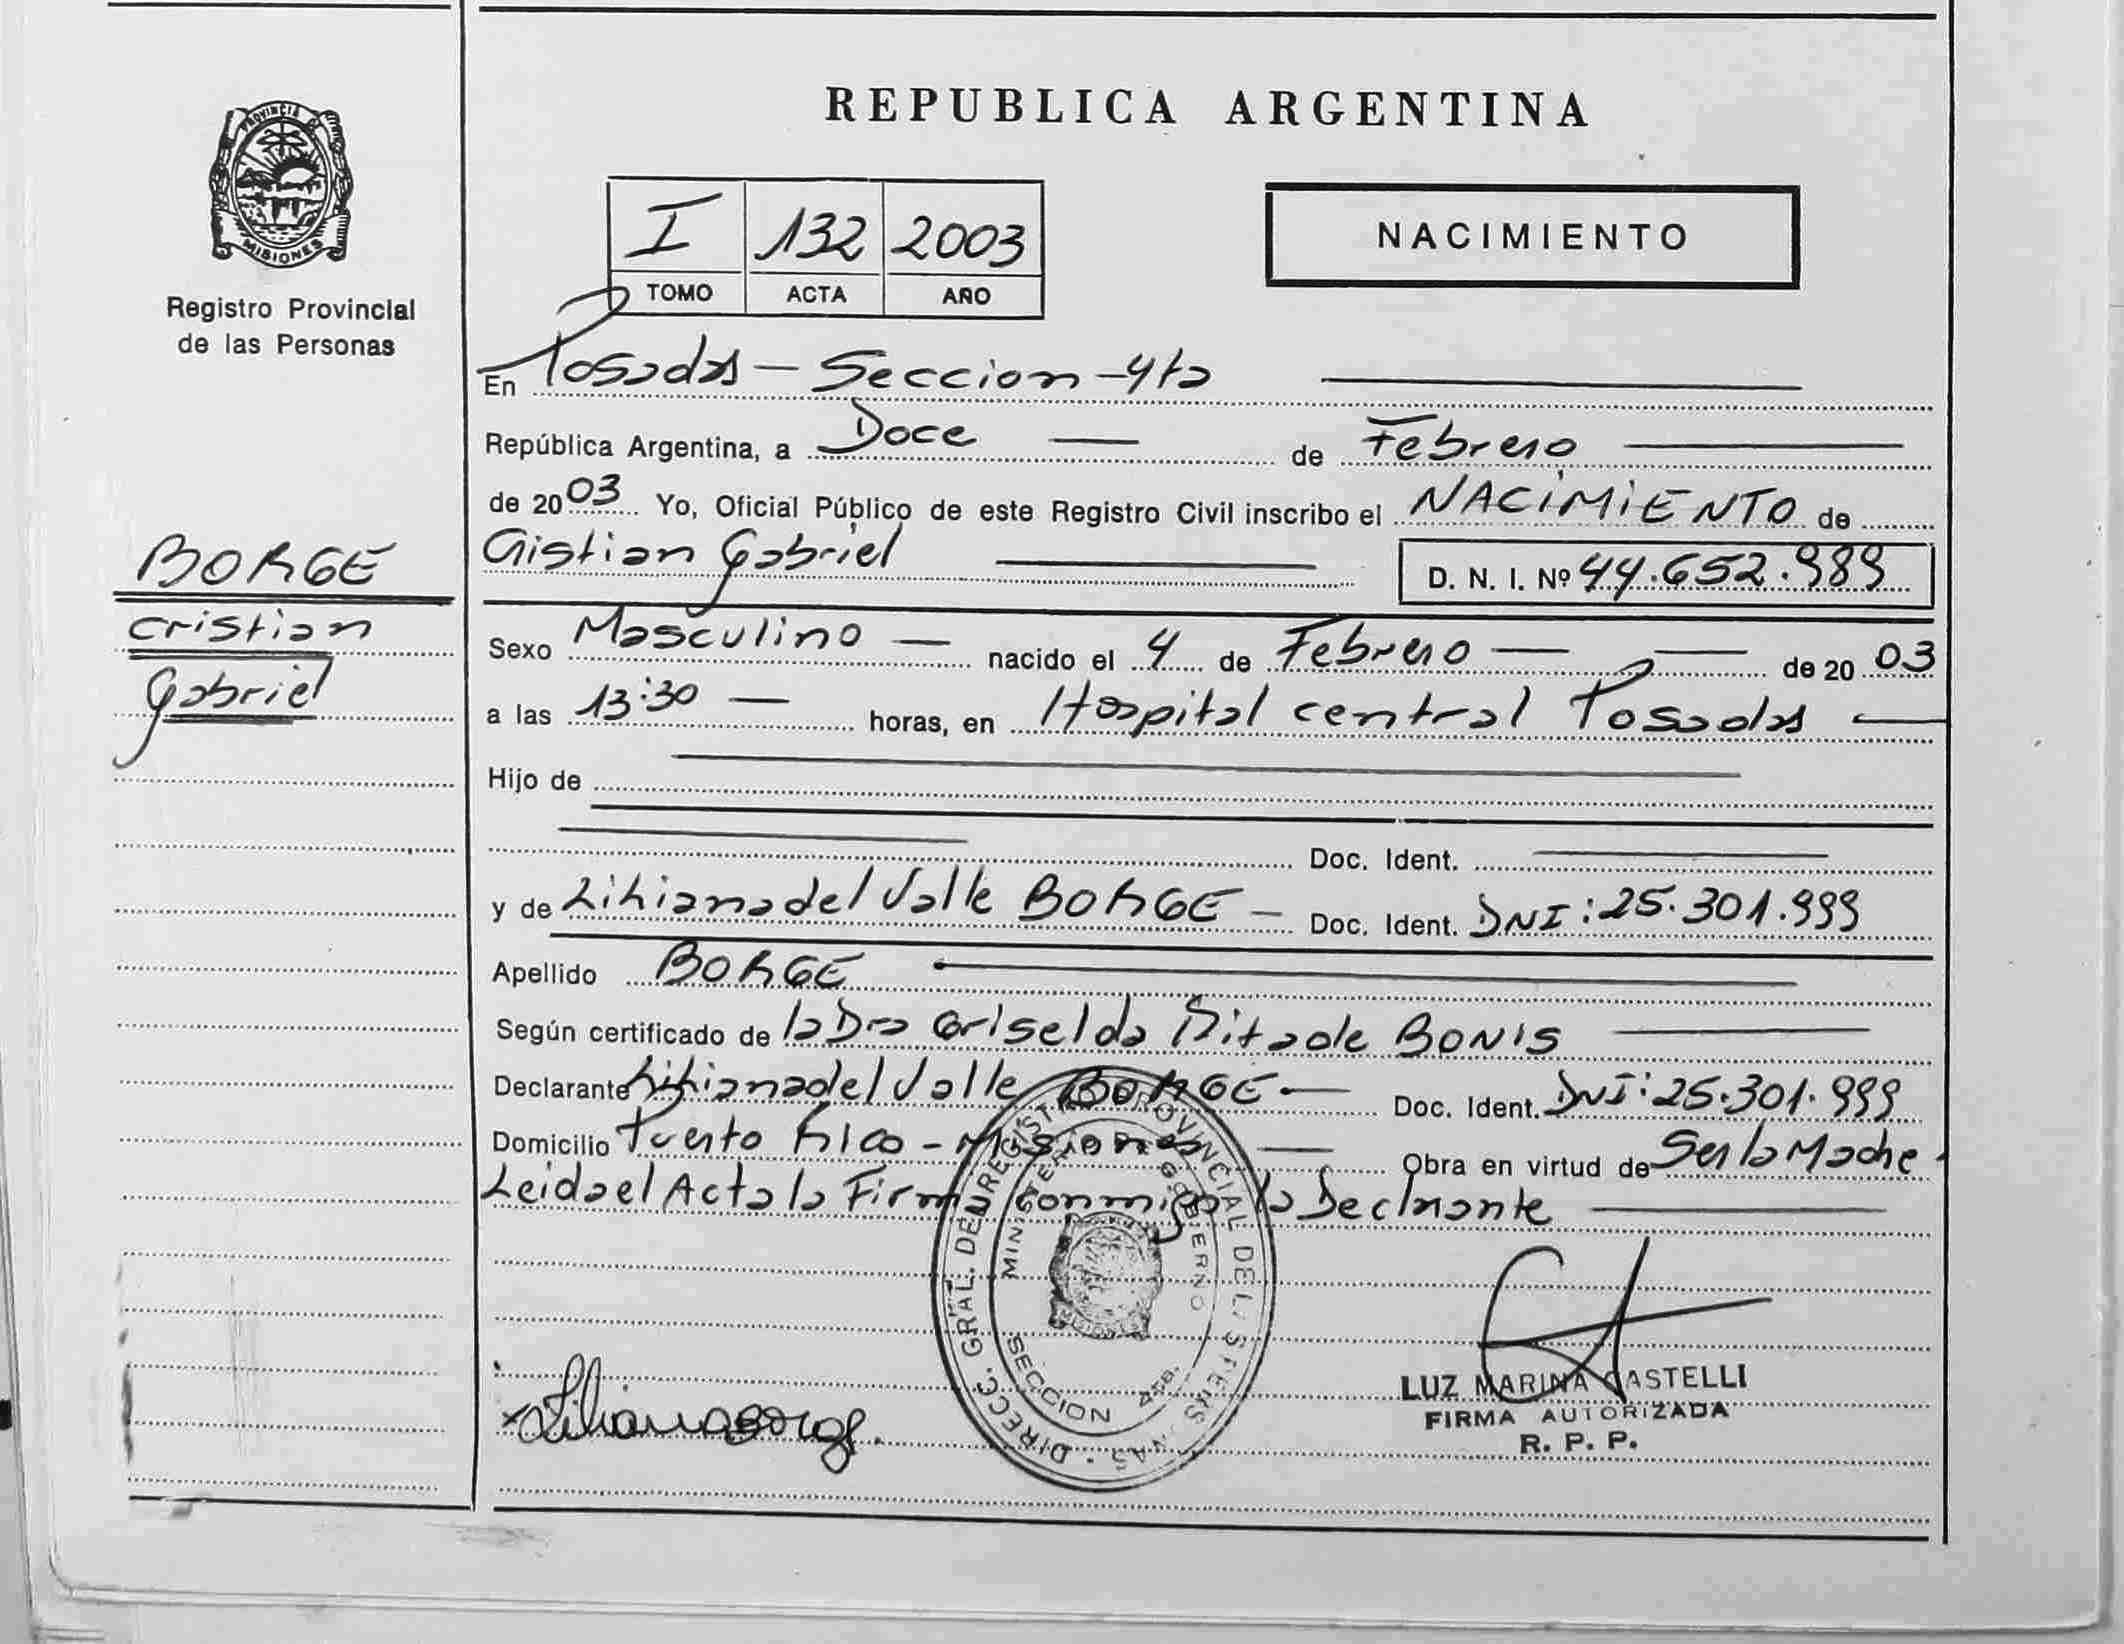 REPUBLICA ARGENTINA
PROVINCIA DE
MISIONES
Registro Provincial
de las Personas
I 132 2003
TOMO ACTA AÑO
NACIMIENTO
En Posadas - Seccion - 4ta
República Argentina, a Doce de Febrero
de 2003 Yo, Oficial Público de este Registro Civil inscribo el NACIMIENTO de
Cristian Gabriel D. N. I. Nº 44.652.989
BORGE
Cristian
Gabriel
Sexo Masculino nacido el 4 de Febrero de 2003
a las 13:30 horas, en Hospital central Posadas
Hijo de
Doc. Ident.
y de Liliana del Valle BORGE Doc. Ident. DNI: 25.301.999
Apellido BORGE
Según certificado de la Dra Griselda Rita de BONIS
Declarante Liliana del Valle BORGE Doc. Ident. DNI: 25.301.999
Domicilio Puerto Rico - Misiones Obra en virtud de Ser la Madre.
Leida el Acta la Firma conmigo la Declarante
DIRECC. GRAL. DEL REGISTRO PROVINCIAL DE LAS PERSONAS
MINISTERIO DE GOBIERNO
SECCION 4ta.
x Liliana Borge.
LUZ MARINA CASTELLI
FIRMA AUTORIZADA
R. P. P.